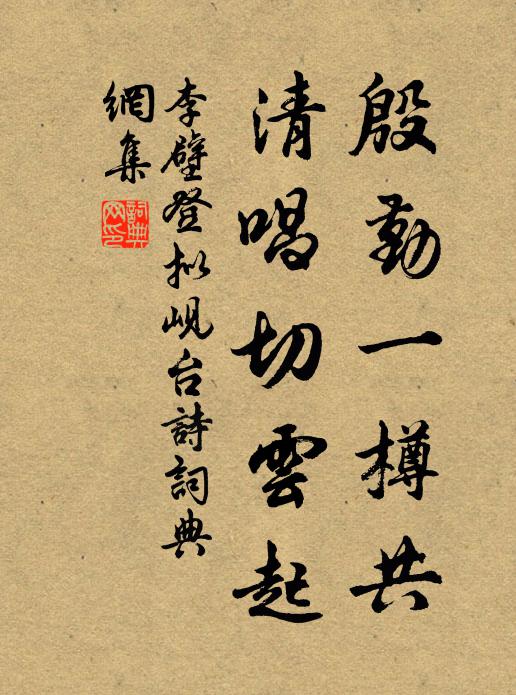 殷勤一樽共
清唱切雲起
李壁登拟峴台詩詞典
網集
詩詞典網印